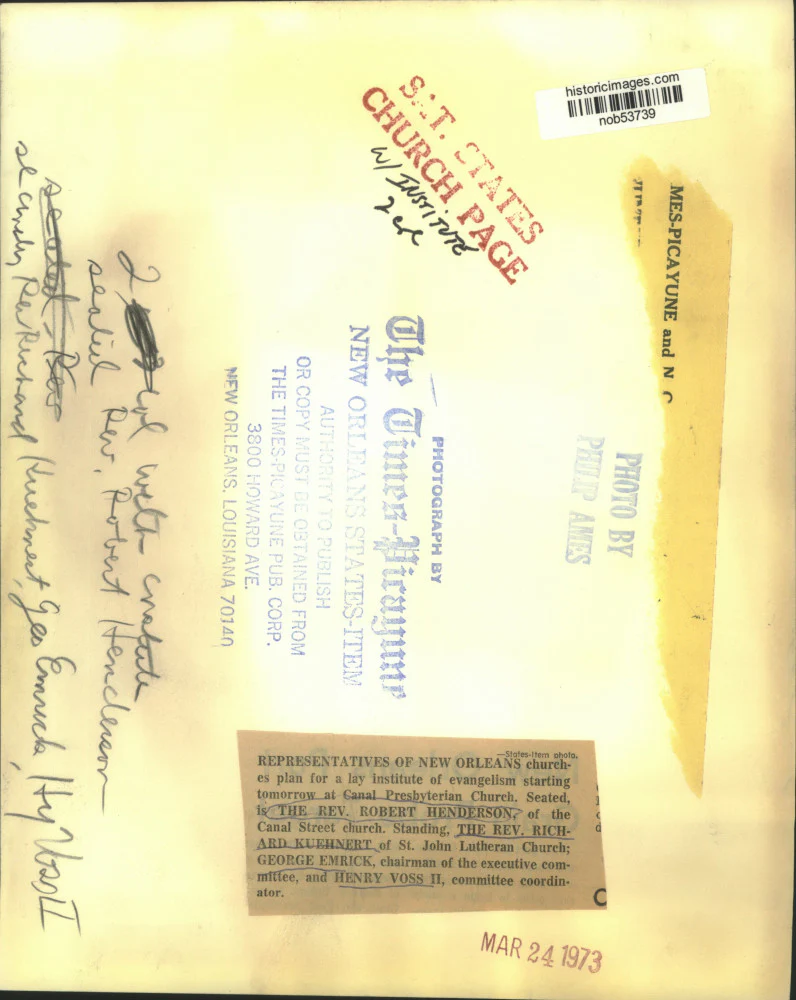 historicimages.com
nob53739
CHURCH PAGE
W/ INSTITUTE
MES-PICAYUNE and N
PHOTO BY
PHILIP AMES
PHOTOGRAPH BY
The Times-Picayune
NEW ORLEANS STATES-ITEM
AUTHORITY TO PUBLISH
OR COPY MUST BE OBTAINED FROM
THE TIMES-PICAYUNE PUB. CORP.
3800 HOWARD AVE.
NEW ORLEANS, LOUISIANA 70140
2 col with
seated Rev. Robert Henderson
seated, Rev
Rev Richard Kuehnert, Geo Emrick, Hy Voss II
—States-Item photo.
REPRESENTATIVES OF NEW ORLEANS church-
es plan for a lay institute of evangelism starting
tomorrow at Canal Presbyterian Church. Seated,
is THE REV. ROBERT HENDERSON, of the
Canal Street church. Standing, THE REV. RICH-
ARD KUEHNERT of St. John Lutheran Church;
GEORGE EMRICK, chairman of the executive com-
mittee, and HENRY VOSS II, committee coordin-
ator.
MAR 24 1973